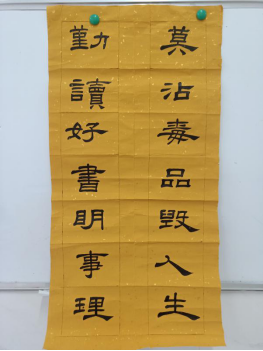 莫沾毒品毀人生
勤讀好書明事理